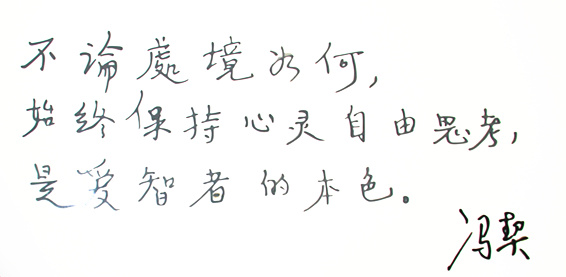 不論處境如何,
始终保持心灵自由思考,
是爱智者的本色.
冯契